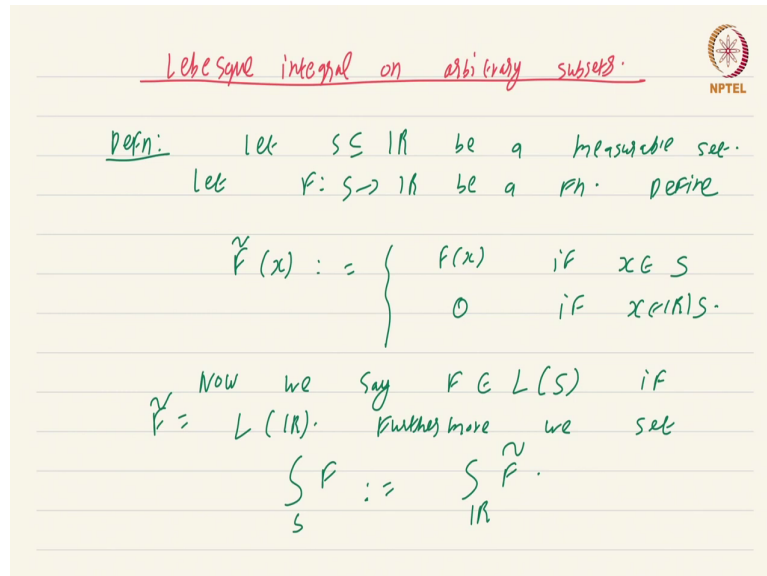 Lebesgue integral on arbitrary subsets.
NPTEL
Defn: Let S ⊆ ℝ be a measurable set.
Let F: S → ℝ be a Fn. Define
F̃(x) := { F(x) if x ∈ S
0 if x ∈ ℝ\S.
Now we say F ∈ L(S) if
F̃ = L(ℝ). Furthermore we set
∫_S F := ∫_ℝ F̃.